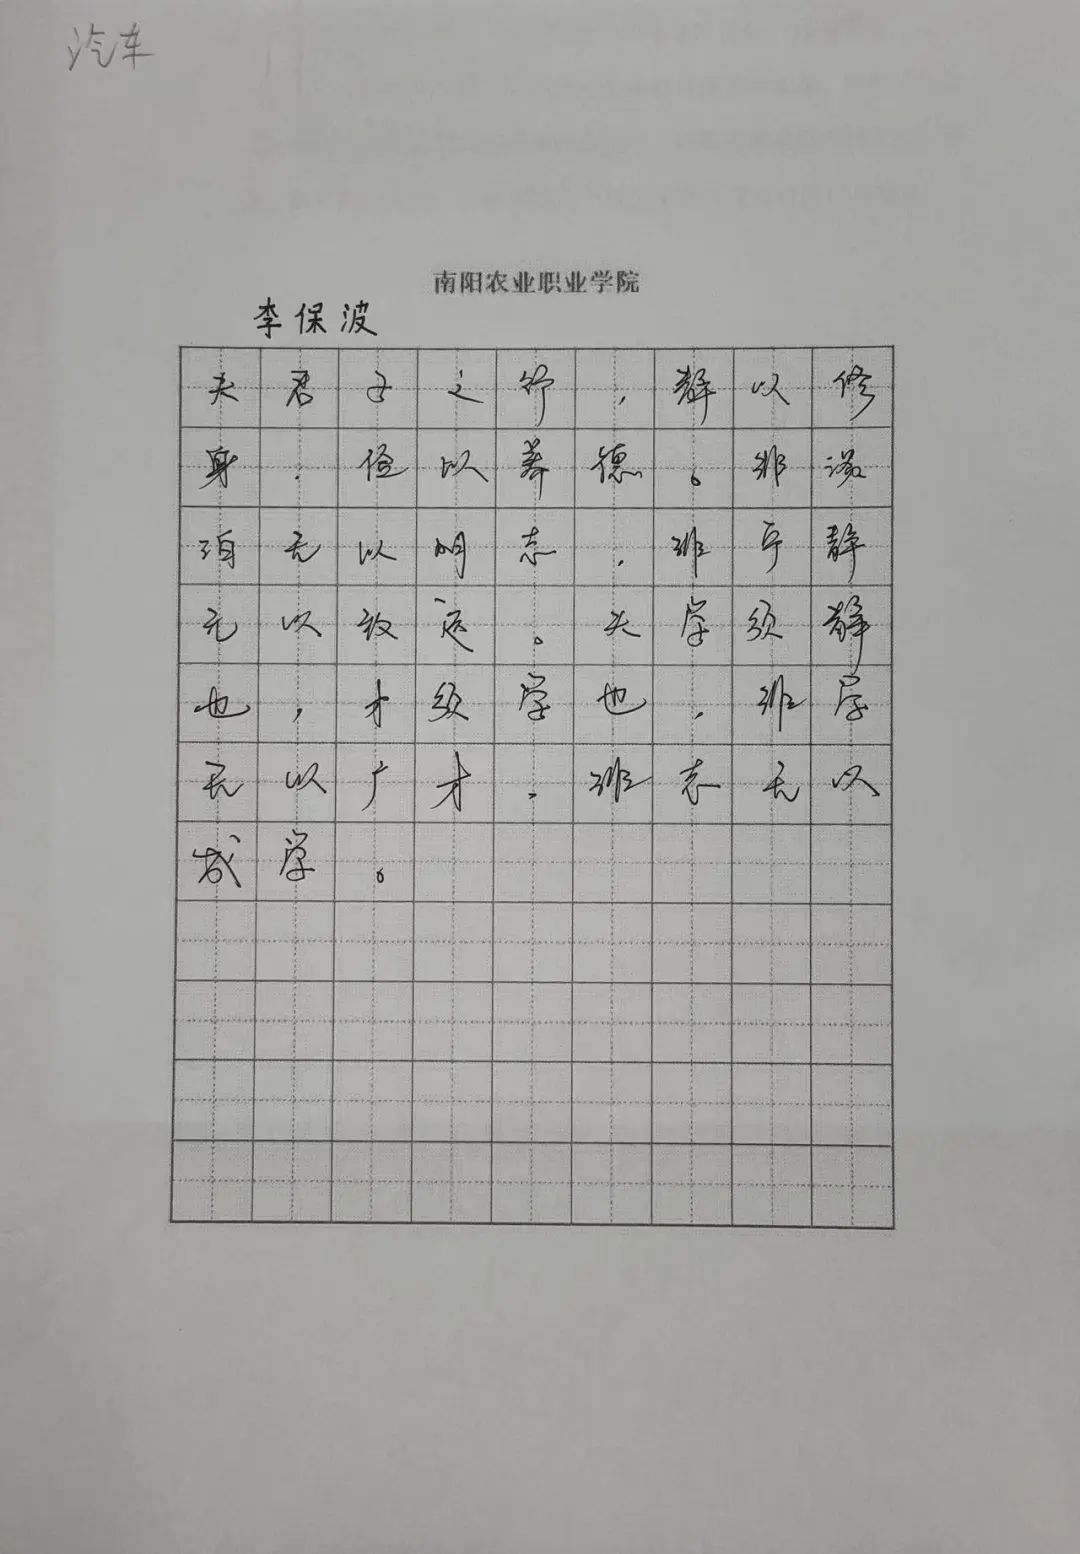 汽车
南阳农业职业学院
李保波
夫君子之行，静以修
身，俭以养德。非澹
泊无以明志，非宁静
无以致远。夫学须静
也，才须学也，非学
无以广才，非志无以
成学。